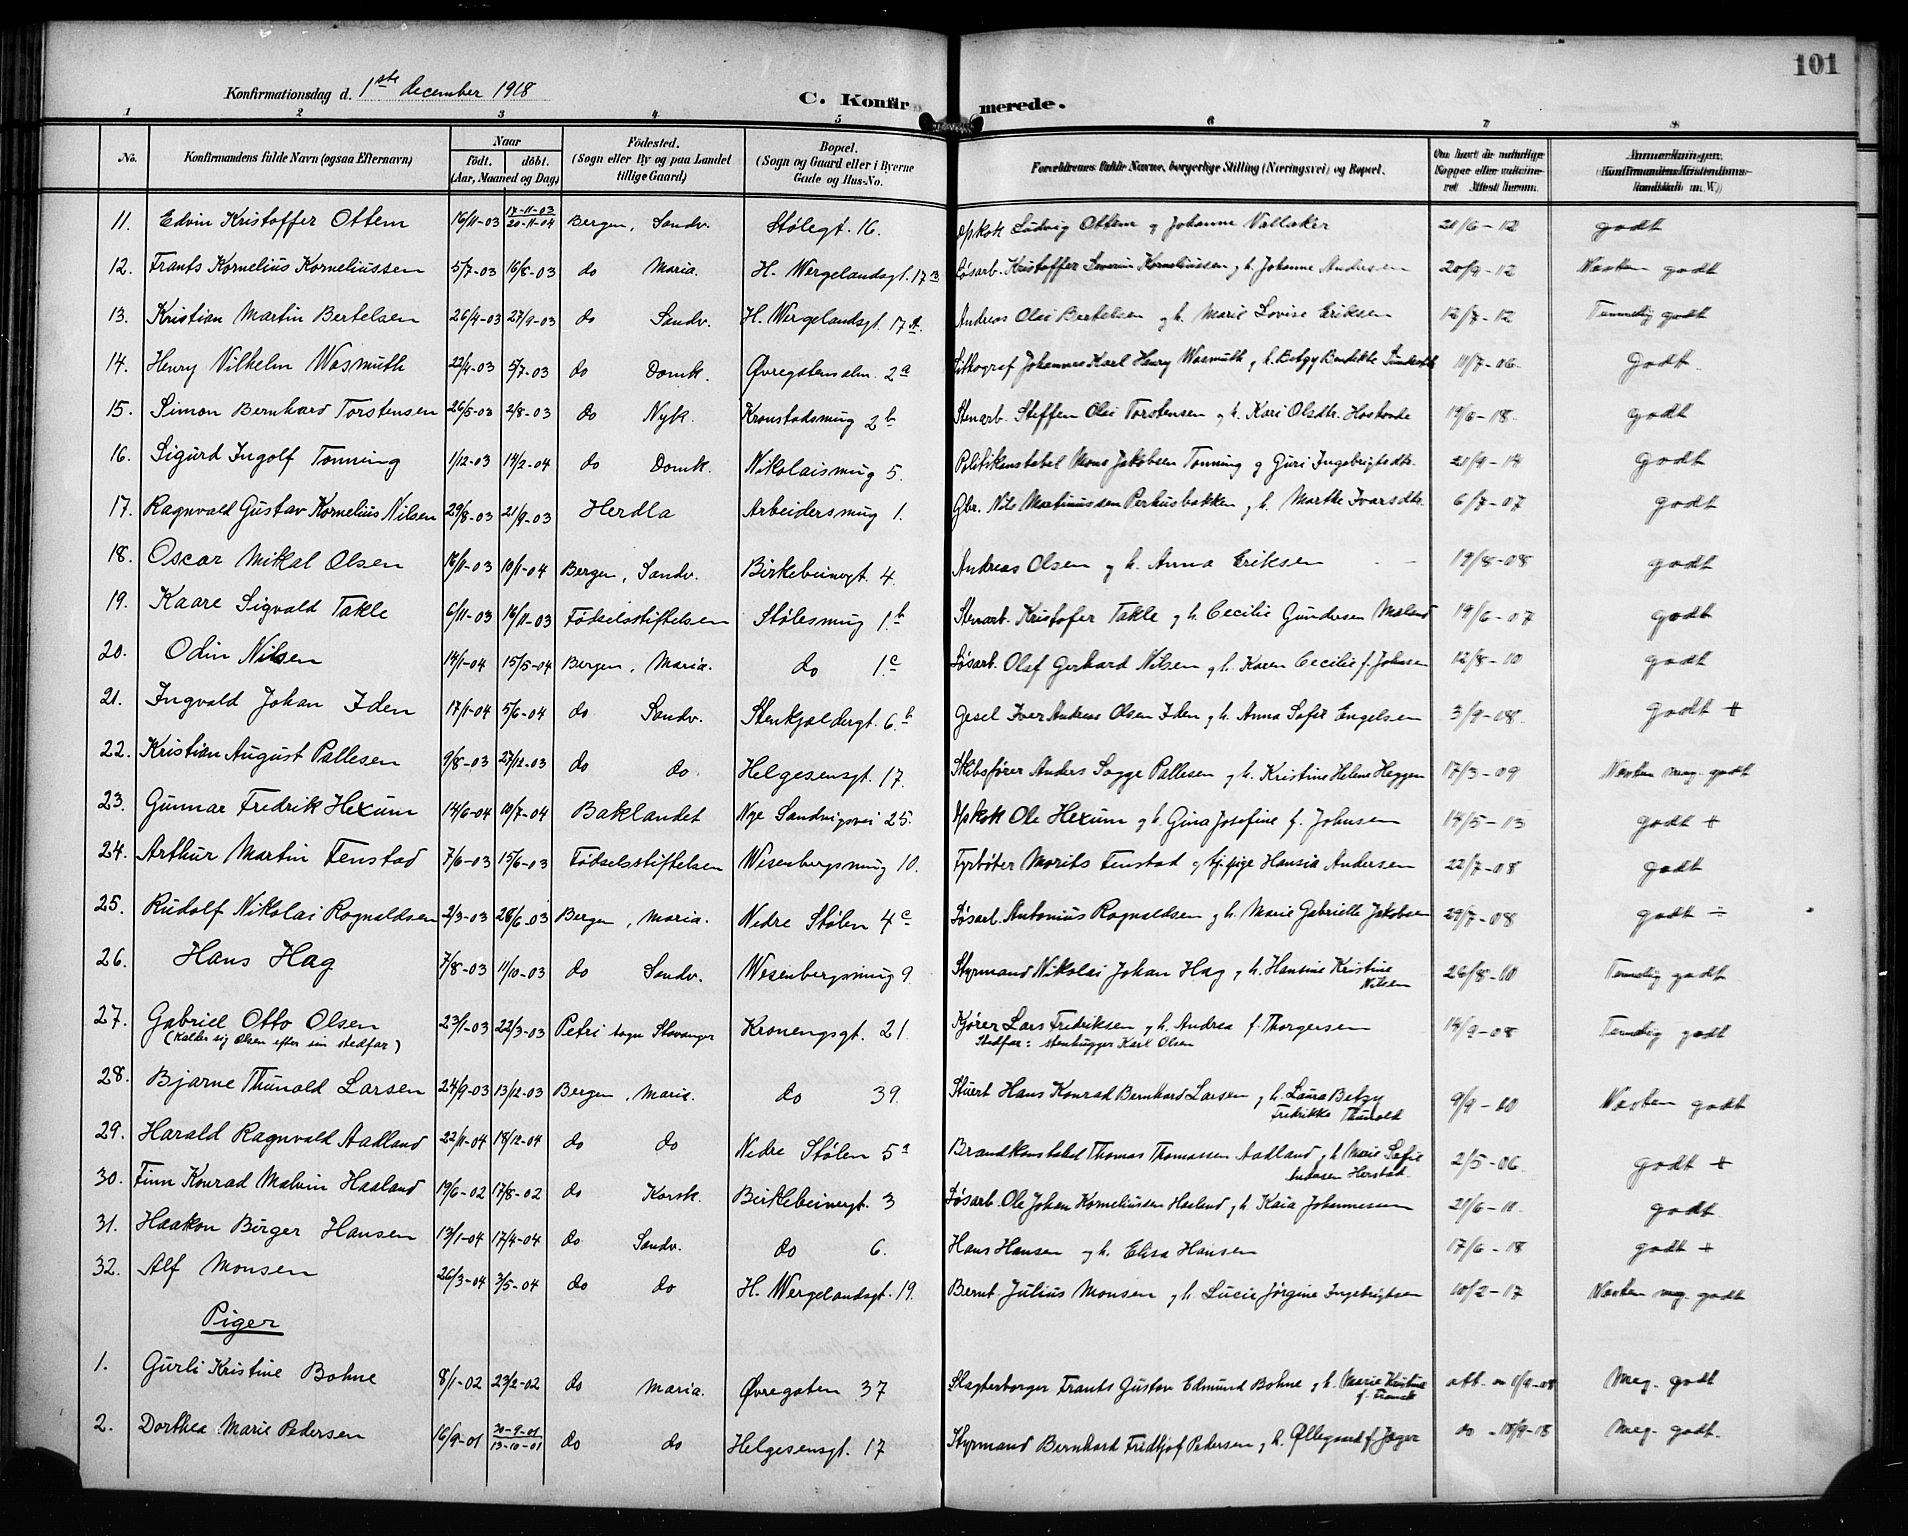 101
Konfirmationsdag d. 1ste december 1918
C. Konfirmerede.
1 2 3 4 5 6 7 8
No. Konfirmandens fulde Navn (ogsaa Efternavn) Naar født. døbt. (Aar, Maaned og Dag) Fødested. (Sogn eller By og paa Landet tillige Gaard) Bopæl. (Sogn og Gaard eller i Byerne Gade og Hus-No. Forældrenes fulde Navne, borgerlige Stilling (Næringsvei) og Bopæl. Om havt de naturlige Kopper eller vaccineret Attest herom. Anmerkninger. (Konfirmandens Kristendomskundskab m. V.)
11. Edvin Kristoffer Ottem 16/11-03 17-11-03 20-11-04 Bergen, Sandv. Stølegt. 16. Ludvig Ottem g Johanne Vallaker 21/6-12 godt
12. Frants Kornelius Korneliussen 5/7-03 16/8-03 do Maria. H. Wergelandsgt. 17 a Løsarb. Kristoffer Severin Korneliussen g h. Johanne Andersen 20/9-12 Næsten godt
13. Kristian Martin Bertelsen 26/4-03 27/9-03 do Sandv. H. Wergelandsgt. 17 a. Andreas Olai Bertelsen g h. Marie Lovise Eriksen 12/7-12 Temmelig godt
14. Henry Vilhelm Wasmuth 22/4-03 5/7-03 do Domk. Øvregatensalm. 2 a Litograf Johannes Karl Henry Wasmuth g h. Betzy Bendikte 10/7-06. Godt.
15. Simon Bernhard Torstensen 26/5-03 2/8-03 do Nyk. Kronstadsmug 2 b Stenarb. Steffen Olai Torstensen g h. Kari Olsdtr. 19/6-18. godt
16. Sigurd Ingolf Tonning 1/12-03 14/2-04 do Domk. Nikolaismug 5. Politikonstabel Mons Jakobsen Tonning g Guri Ingebrigtsdtr. 21/9-14 godt
17. Ragnvald Gustav Kornelius Nilsen 29/8-03 21/9-03 Herdla Arbeidersmug 1. Gbr. Nils Martinussen Perhusbakken g h. Marthe Ivarsdtr. 6/7-07 godt
18. Oscar Mikal Olsen 16/11-03 10/1-04 Bergen, Sandv. Birkebeinergt. 4. Andreas Olsen g h. Anna Eriksen 19/8-08 godt
19. Kaare Sigvald Takle 6/11-03 16/11-03 Fødselsstiftelsen Stølesmug 1. b Stenarb. Kristofer Takle g h. Cecilie Gundersen Meland 19/6-07 godt
20. Odin Nilsen 14/1-04 15/5-04 Bergen, Maria. do 1. c Løsarb. Olaf Gerhard Nilsen g h. Karen Cecilie f. Johnsen 12/8-10 godt
21. Ingvald Johan Iden 17/1-04 5/6-04 do Sandv. Stenkjeldergt. 6. b Gesel Iver Andreas Olsen Iden g h. Anna Sofie Engelsen 3/9-08. godt +
22. Kristian August Pallesen 9/8-03 27/12-03 do do. Helgesensgt. 17. Skibsfører Anders Sogge Pallesen g h. Kristine Helene Heggen 17/3-09 Næsten meg. godt
23. Gunnar Fredrik Hexum 14/6-04 10/7-04 Baklandet Nye Sandvigsvei 25. Ole Hexum g h. Gina Josefine f. Johnsen 14/5-13 godt +
24. Arthur Martin Fenstad 7/6-03 15/6-03 Fødselsstiftelsen Wesenbergsmug 10. Fyrbøter Morits Fenstad g tj. pige Hansia Andersen 22/7-08 godt
25. Rudolf Nikolai Rognaldsen 2/3-03 28/6-03 Bergen, Maria. Nedre Stølen 4 c Løsarb. Antonius Rognaldsen g h. Marie Gabrielle Jakobsen 29/7-08 godt ÷
26. Hans Hag 7/8-03 11/10-03 do Sandv. Wesenbergsmug 9. Styrmand Nikolai Johan Hag g h. Hansine Kristine Nilsen 26/8-10 Temelig godt
27. Gabriel Otto Olsen 23/1-03 22/3-03 Petri sogn Stavanger Kroneng­sgt. 21. Kjører Lars Fredriksen g h. Andrea f. Thorgersen 14/9-08 Temelig godt
(kalder sig Olsen efter sin stedfar) Stedfar: stenhugger Karl Olsen
28. Bjarne Thunold Larsen 24/9-03 13/12-03 Bergen, Marie. do 39. Stuert Hans Konrad Bernhard Larsen g h. Laura Betzy Fredrikke Thunold 9/9-10 Næsten godt
29. Harald Ragnvald Aadland 22/11-04 18/12-04 do do Nedre Stølen 5 a Brandkonstabel Thomas Thomassen Aadland g h. Marie Sofie Andersen Herstad. 2/5-06. godt +
30. Finn Konrad Malvin Haaland 19/6-02 17/8-02 do Korsk. Birkebeinergt. 3 Løsarb. Ole Johan Korneliussen Haaland g h. Kaia Johannesen 21/6-10. godt.
31. Haakon Birger Hansen 13/1-04 17/4-04 do Sandv. do 6. Hans Hansen g h. Elisa Hansen 17/6-18 godt +
32. Alf Monsen 26/3-04 3/5-04 do do H. Wergelandsgt. 19. Bernt Julius Monsen g h. Lucie Jørgine Ingebrigtsen 10/2-17 Næsten meg. godt
Piger
1. Gurli Kristine Bohne 8/1-02 23/2-02 do Maria. Øvregaten 37 Slagterborger Frants Gustav Edmund Bohne g h. Marie Kristine f. att. Meg. godt
2. Dorthea Marie Pedersen 16/9-01 30-9-01 13-10-01 do do Helgesensgt. 17 Styrmand Bernhard Fredtjof Pedersen g h. Øllegaard f. Jæger do - 18/9-18 Meg. godt.